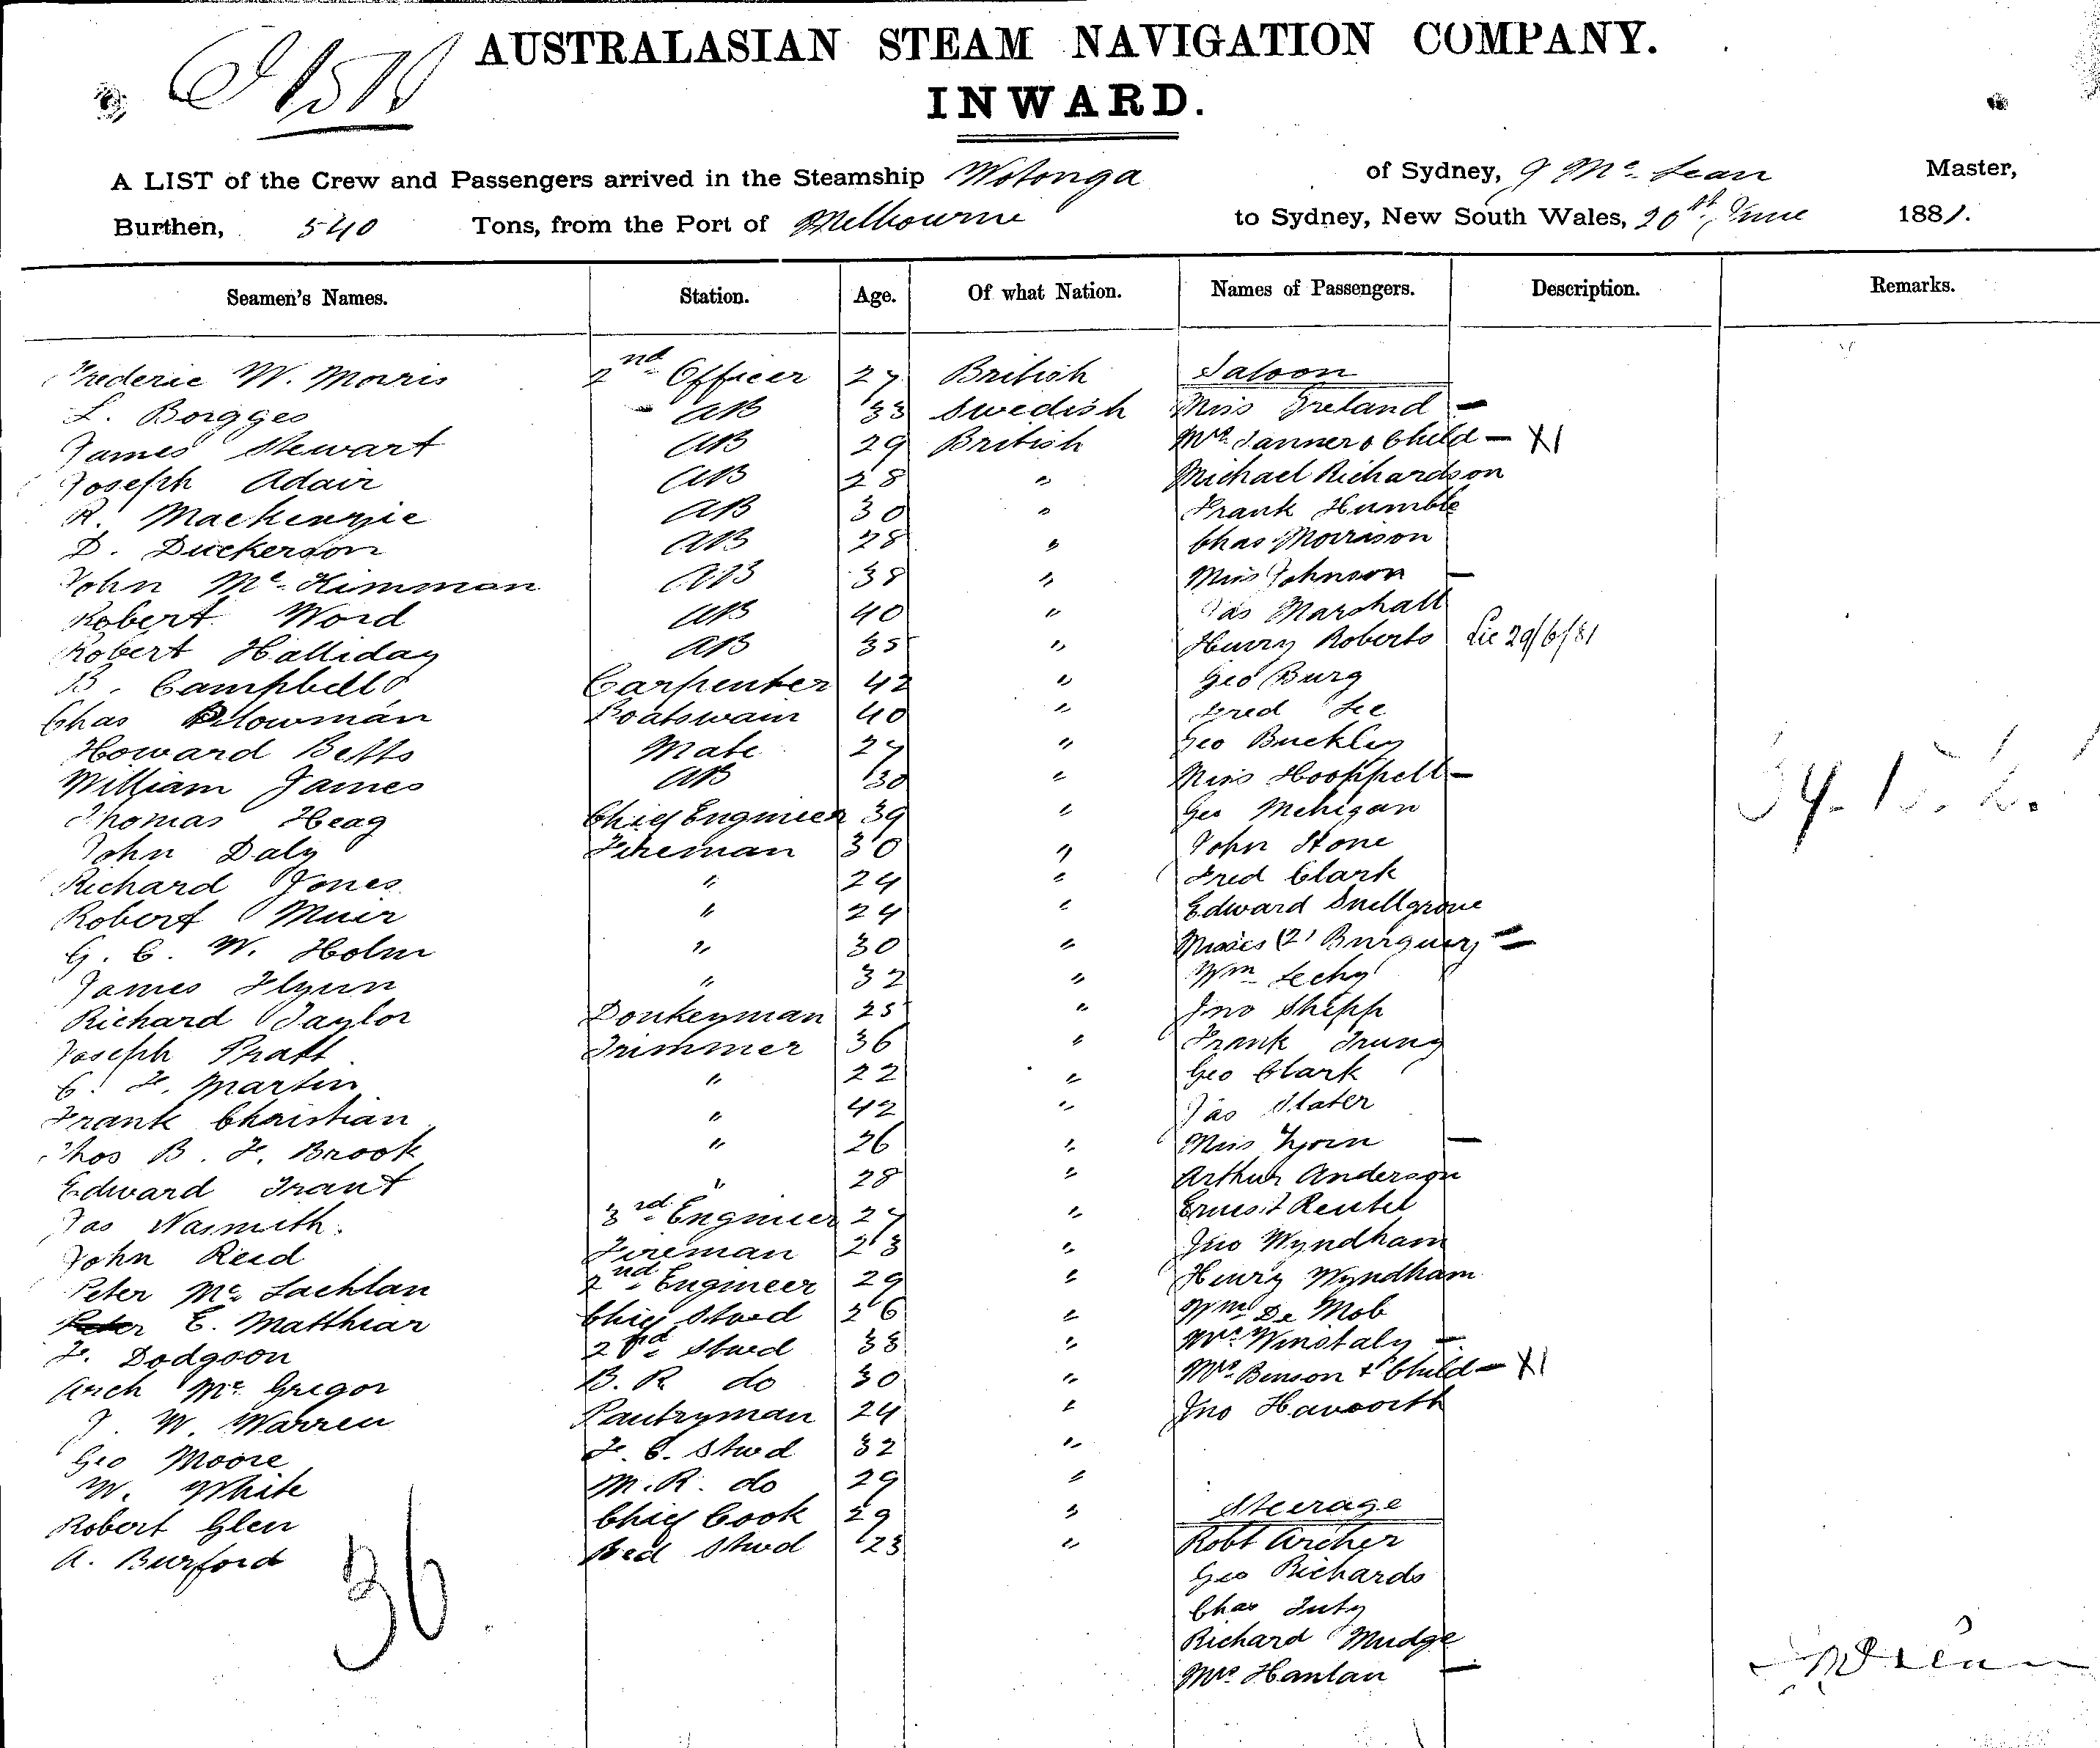 AUSTRALASIAN STEAM NAVIGATION COMPANY.
INWARD.
A LIST of the Crew and Passengers arrived in the Steamship Wotonga of Sydney, J Mc Lean Master,
Burthen, 540 Tons, from the Port of Melbourne to Sydney, New South Wales, 20th June 1881.
Seamen's Names. Station. Age. Of what Nation. Names of Passengers. Description. Remarks.
Frederic W. Morris 2nd Officer 27 British Saloon
L. Borgges AB 33 Swedish Miss Ireland —
James Stewart AB 29 British Mrs Tanner & Child — X1
Joseph Adair AB 28 " Michael Richardson
R. Mackenzie AB 30 " Frank Humble
D. Duckerson AB 28 " Chas Morrison
John Mc Kimman AB 38 " Miss Johnson —
Robert Word AB 40 " Jas Marshall
Robert Halliday AB 35 " Henry Roberts Lie 29/6/81
B. Campbell Carpenter 42 " Geo Burg
Chas Plowman Boatswain 40 " Fred Lee
Howard Betts Mate 27 " Geo Buckley
William James AB 30 " Miss Hooppell —
Thomas Heag Chief Engineer 39 " Geo Mehigan
John Daly Fireman 30 " John Stone
Richard Jones " 24 " Fred Clark
Robert Muir " 24 " Edward Snellgrove
G. C. W. Holm " 30 " Misses (2) —
James Flynn " 32 " Wm Lechy
Richard Taylor Donkeyman 25 " Jno Shepp
Joseph Pratt Trimmer 36 " Frank Trung
C. F. Martin " 22 " Geo Clark
Frank Christian " 42 " Jas Slater
Thos B. F. Brook " 26 " Miss —
Edward Trant " 28 " Arthur Anderson
Jas Nasmith 3rd Engineer 27 " Ernest Reutel
John Reed Fireman 23 " Jno Wyndham
Peter Mc Lachlan 2nd Engineer 29 " Henry Wyndham
E. Matthiar Chief Stwd 26 " Wm De Mob
F. Dodgson 2nd Stwd 33 " Mrs Winstaly —
Arch Mc Gregor B. R do 30 " Mrs Benson & Child — X1
J. W. Warren Pantryman 24 " Jno Haworth
Geo Moore F. C. Stwd 32 "
W. White M. R. do 29 "
Robert Glen Chief Cook 29 " Steerage
A. Burford Bed Stwd 23 " Robt Archer
Geo Richards
Chas Tuty
Richard Mudge
Mrs Hanlan —
36